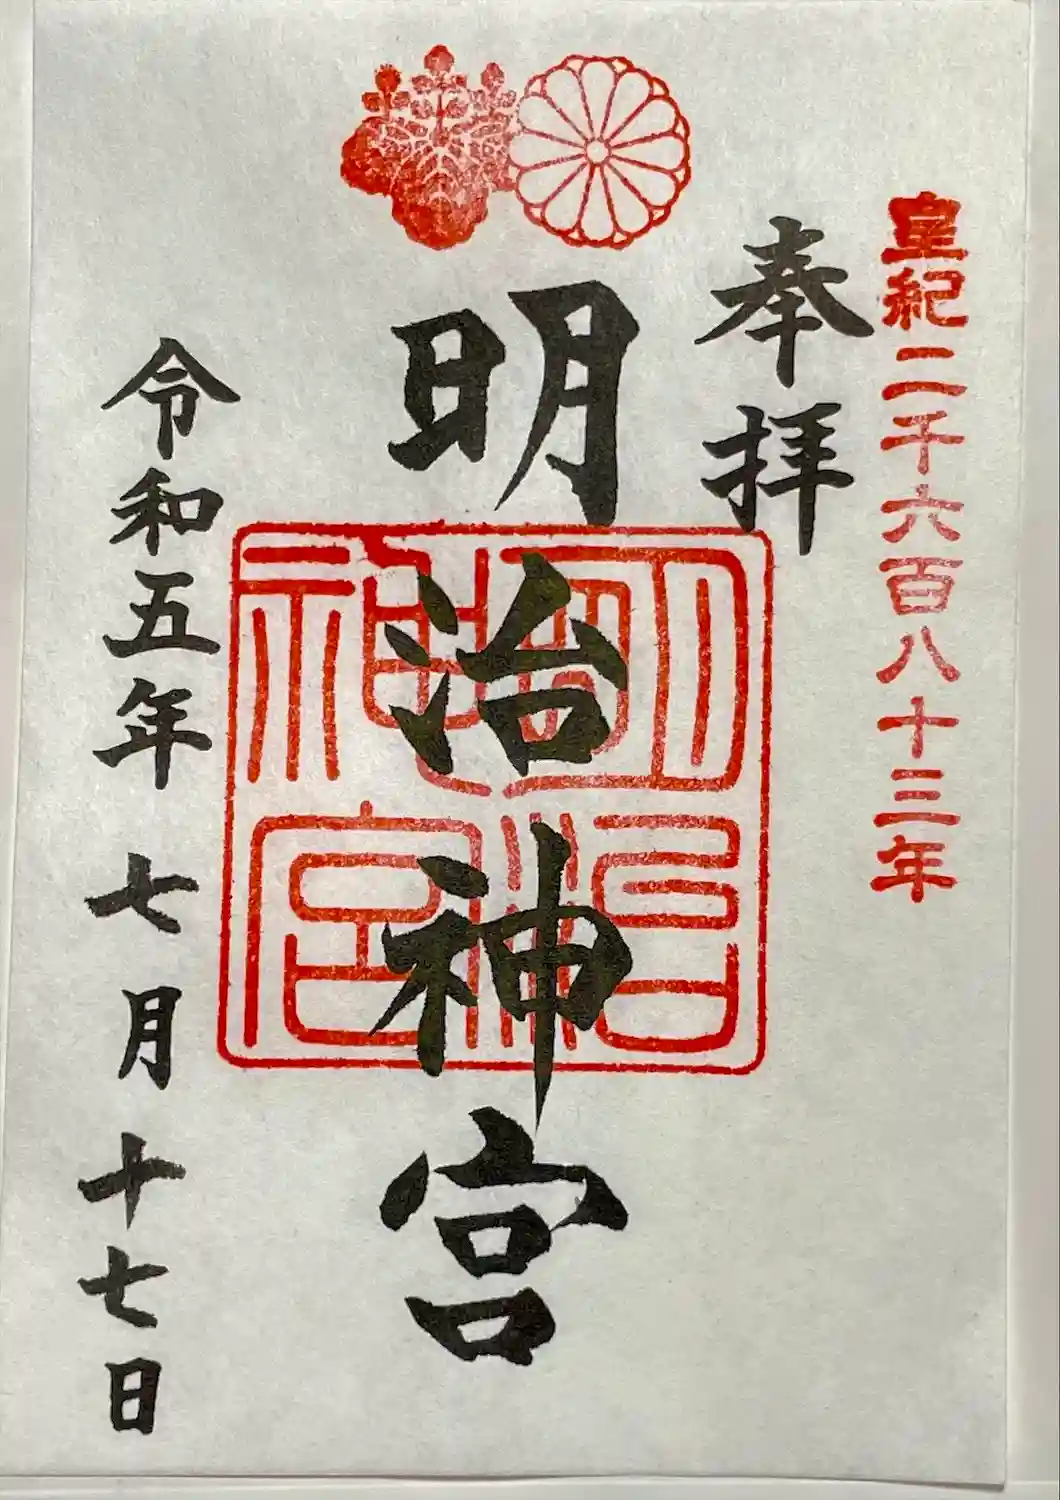 皇紀二千六百八十三年
奉拝
明治神宮
明治神宮
令和五年七月十七日